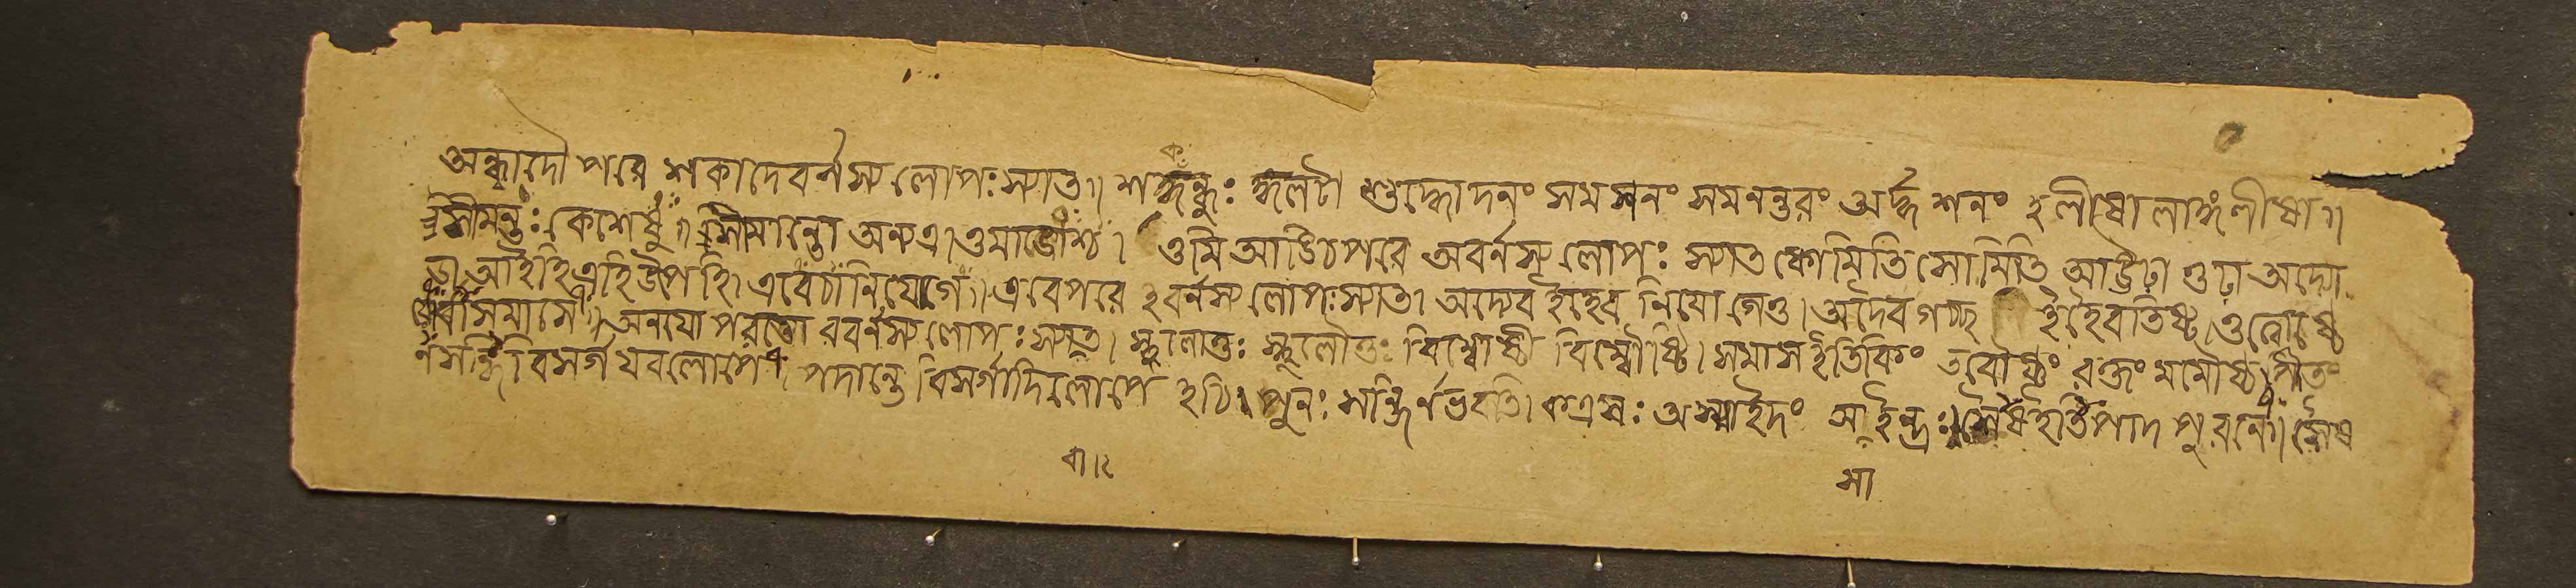 ক
অন্ধাদৌ পরে শকাদেবর্নস্য লোপঃ স্যাত॥ শকন্ধুঃ কুলটা শুদ্ধোদনং সমসনং সমনন্তরং অর্দ্ধশনং হলীষো লাঙ্গলীষা॥
সীমন্তঃ কেশেষু॥ সীমান্তো অন্যত্র। ওমাঙোশ্চ। ওমি আঙি চ পরে অবর্নস্য লোপঃ স্যাত কোমিতি সোমিতি আঊঢা ওঢা অদ্যো
ঢা আইহি এহি উপেহি। এবে চানিযোগে॥ এবে পরে ২বর্নস্য লোপঃ স্যাত। অদ্যেব ইহেব নিযোগেতু। অদৈব গচ্ছ ইহৈব তিষ্ঠ। ওত্বোষ্ঠ
যোর্বা সমাসে॥ অনযো পরতো রবর্নস্য লোপঃ স্যাত। স্থুলোতুঃ স্থুলৌতুঃ বিম্বোষ্ঠী বিম্বৌষ্ঠি। সমাস ইতি কিং তবৌষ্ঠং রক্তং মমৌষ্ঠং পীতং
ন সন্ধি বিসর্গ যবলোপে। পদান্তে বিসর্গাদিলোপে ২চি পুনঃ সন্ধির্ন ভবতি। ক এসঃ অস্মা ইদং আ ইন্দ্রঃ। সৈষ ইতি পাদ পুরনে। সৈষ
বা।২
সা